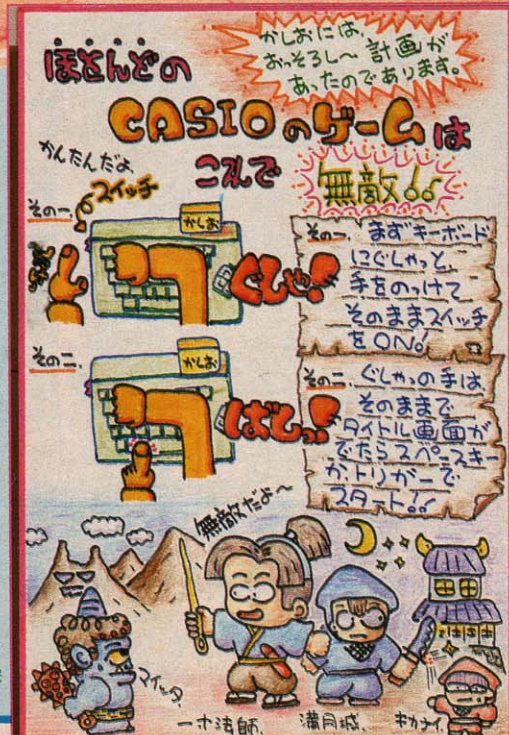 かしおには、
おっそろし〜計画が
あったのであります。
ほとんどの
CASIOのゲームは
これで
無敵!!
かんたんだよ
スイッチ
その一、
かしお
ぐしゃ!
その一、まずキーボード
にぐしゃっと
手をのっけて
そのままスイッチ
をON!
その二、
かしお
ばしっ!
その二、ぐしゃっの手は、
そのままで
タイトル画面が
でたらスペースキー
か、トリガーで
スタート!!
無敵だよ〜
マイッタ、
一寸法師、
満月城、